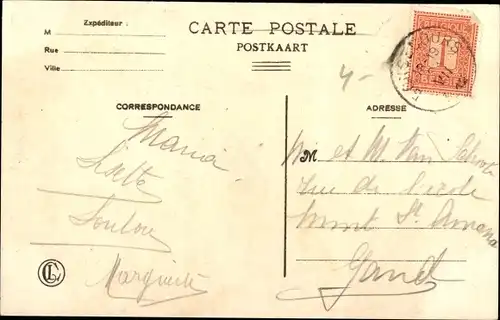 Zxpéditeur :
M
Rue
Ville
CARTE POSTALE
POSTKAART
4-
CORRESPONDANCE
ADRESSE
Maria
Lisette
Loulou
Marguerite
M. et M. Van
rue de l'école
mont St. Amand
Gand